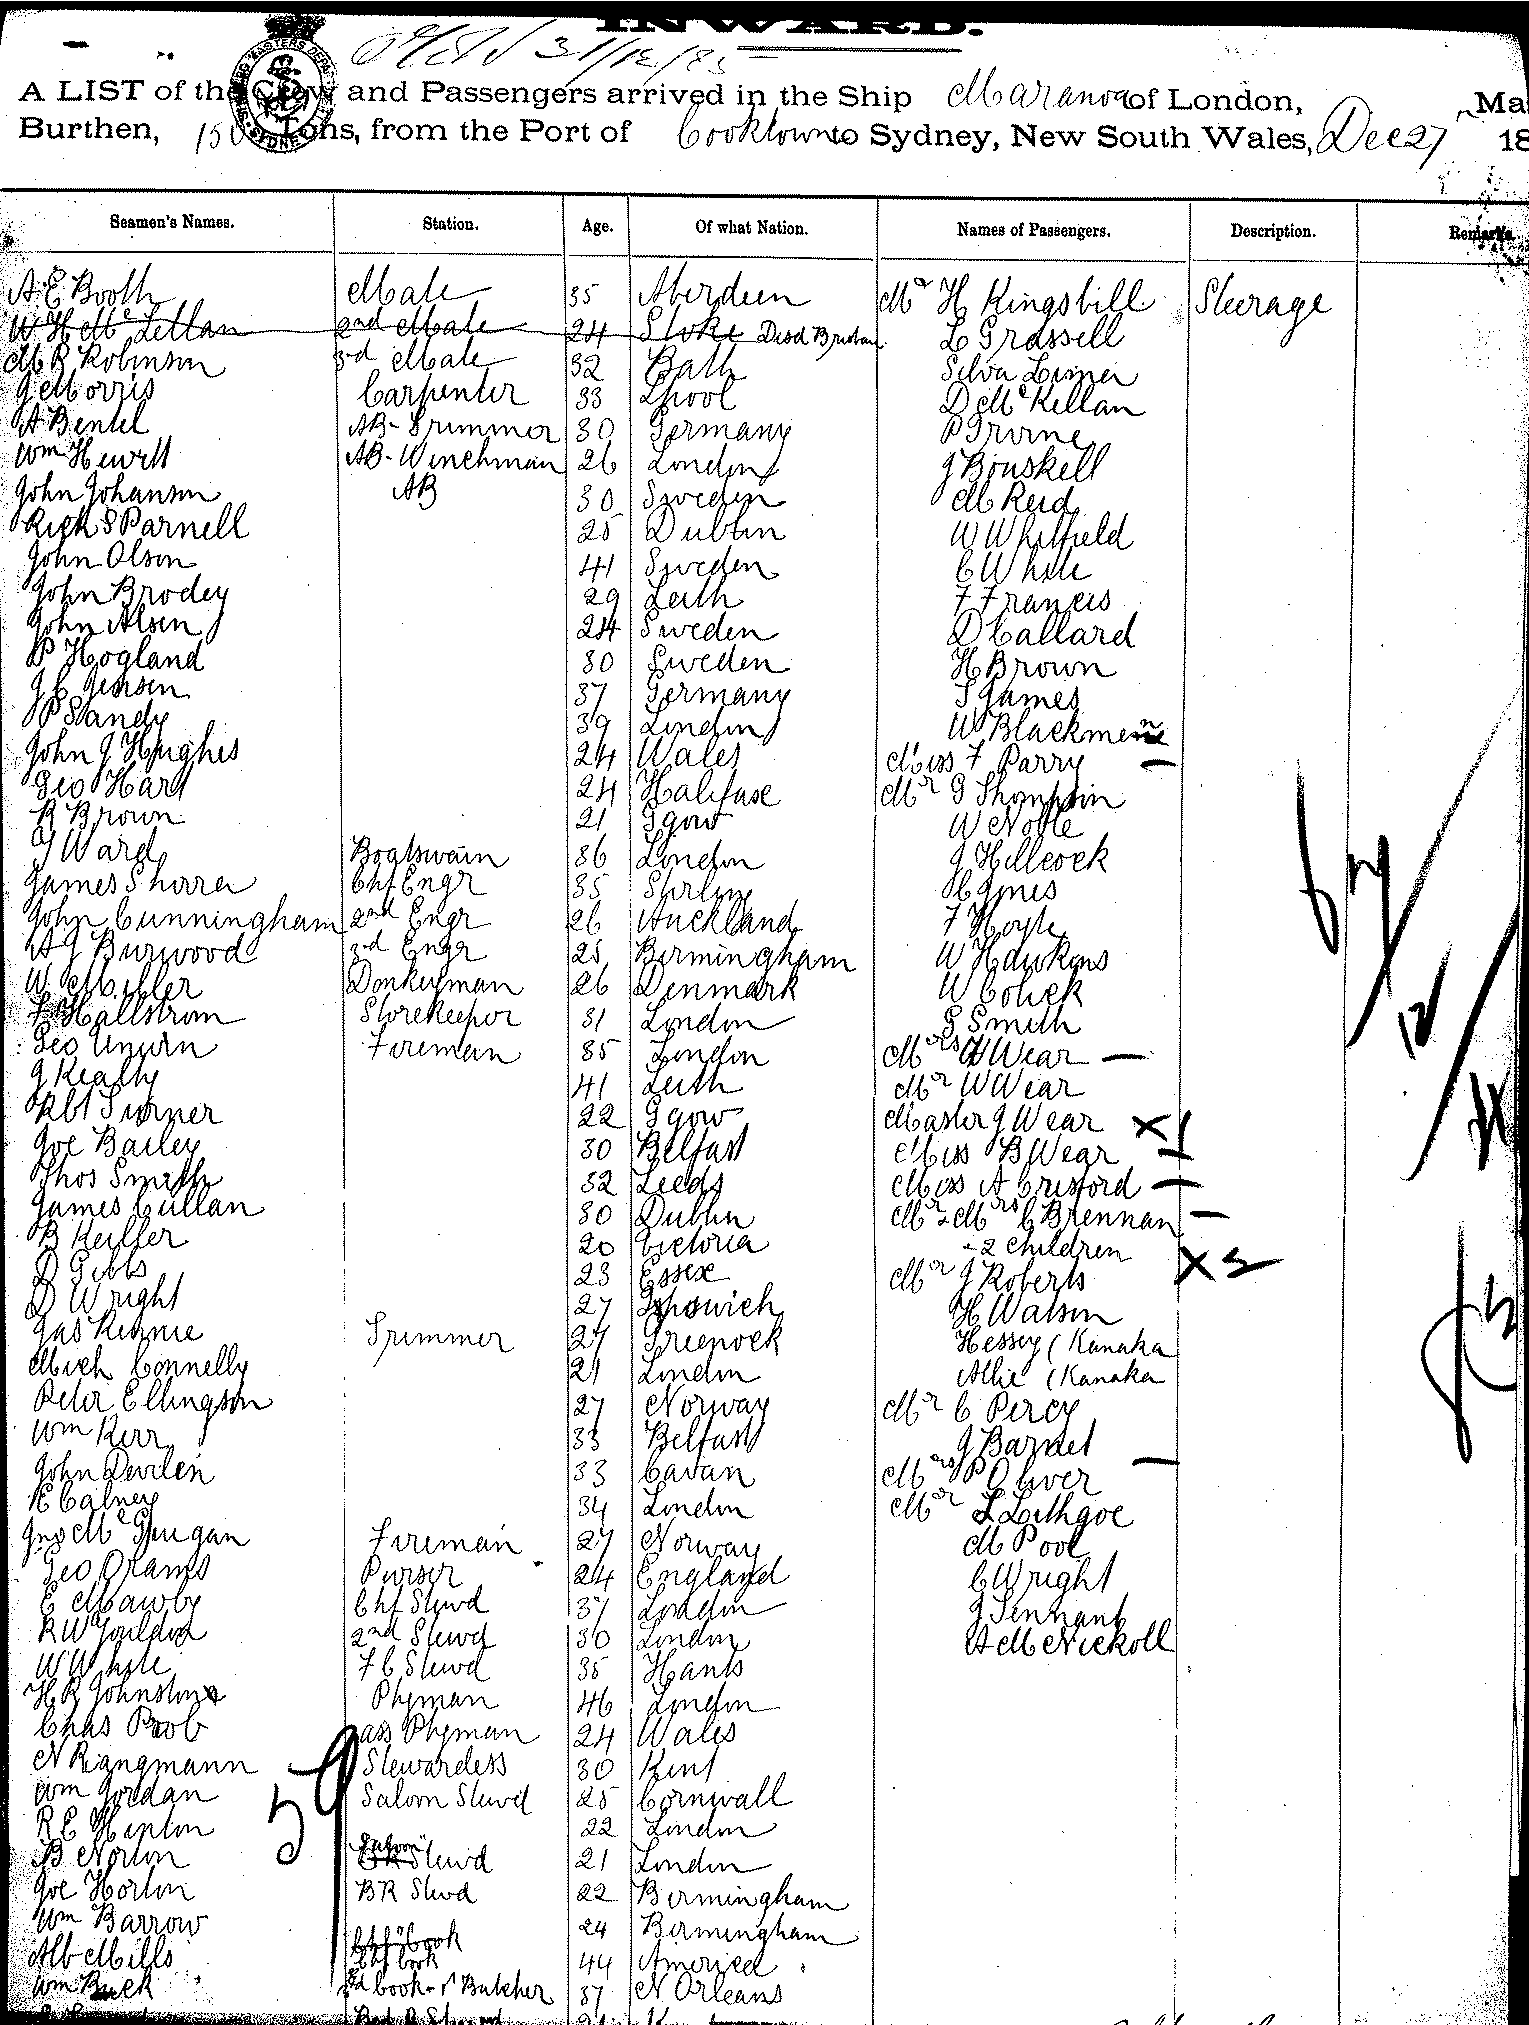 INWARD.
31/12/85
A LIST of the Crew and Passengers arrived in the Ship Maranoa of London,
Burthen, Tons, from the Port of Cooktown to Sydney, New South Wales, Dec 27 18
Seamen's Names. Station. Age. Of what Nation. Names of Passengers. Description. Remarks.
A E Booth Mate 35 Aberdeen Mr H Kingsbill Steerage
W H McLellan 2nd Mate 24 Stoke L Grassell
M R Robinson 3rd Mate 32 Bath Silva
J Morris Carpenter 33 Lpool D McKellan
A Bentel AB-Trimmer 30 Germany P Irvine
Wm Hewitt AB-Winchman 26 London J Bouskell
John Johanson AB 30 Sweden M Reid
Rich S Parnell 25 Dublin W Whitfield
John Olson 41 Sweden C White
John Brodey 29 Leith F Francis
John Alsen 24 Sweden D Callard
P Hogland 30 Sweden H Brown
J C Jensen 37 Germany S James
P Sandy 39 London W Blackmen
John J Hughes 24 Wales Miss F Parry
Geo Hart 24 Halifax Mr G Thompson
R Brown 21 Ggow W Noble
J Ward Boatswain 36 London J Hillcock
James Shirra Chf Engr 35 Stirling H Jones
John Cunningham 2nd Engr 26 Auckland F Hoyle
A J Burwood 3rd Engr 25 Birmingham W Hawkins
W Miller Donkeyman 26 Denmark W
F Hallstrom Storekeeper 31 London G Smith
Geo Unwin Fireman 35 London Mrs W Wear
J Kealty 41 Leith Mr W Wear
Rbt Turner 22 Ggow Master J Wear X 1
Joe Bailey 30 Belfast Miss B Wear
Thos Smith 32 Leeds Miss A Crisford
James Cullan 30 Dublin Mr & Mrs C Brennan
B Keiller 20 Victoria - 2 children X 2
D Gibbs 23 Essex Mr J Roberts
D Wright 27 Ipswich H Watson
Jas Rennie Trimmer 27 Greenock Hessey (Kanaka
Mich Connelly 21 London Allie (Kanaka
Peter Ellingson 27 Norway Mr C Percy
Wm Kerr 33 Belfast J Barnet
John Devilen 33 Cavan Mrs P Oliver
E Calney 34 London Mr L Lithgoe
Jno McGuigan Fireman 27 Norway M Pool
Geo Orams Purser 24 England C Wright
E Mawby Chf Stewd 37 London J Tennant
R W 2nd Stewd 30 London A McNickoll
W White F C Stewd 35 Hants
H R Johnston 46 London
Chas Prob ass 24 Wales
N Rangmann Stewardess 30 Kent
59
Wm Jordan Saloon Stewd 25 Cornwall
R E Hinton 22 London
B Norton Saloon Stewd 21 London
Joe Horton BR Stewd 22 Birmingham
Wm Barrow 24 Birmingham
Alb Mills Chf Cook 44 America
Wm Buck Cook & Butcher 37 N Orleans